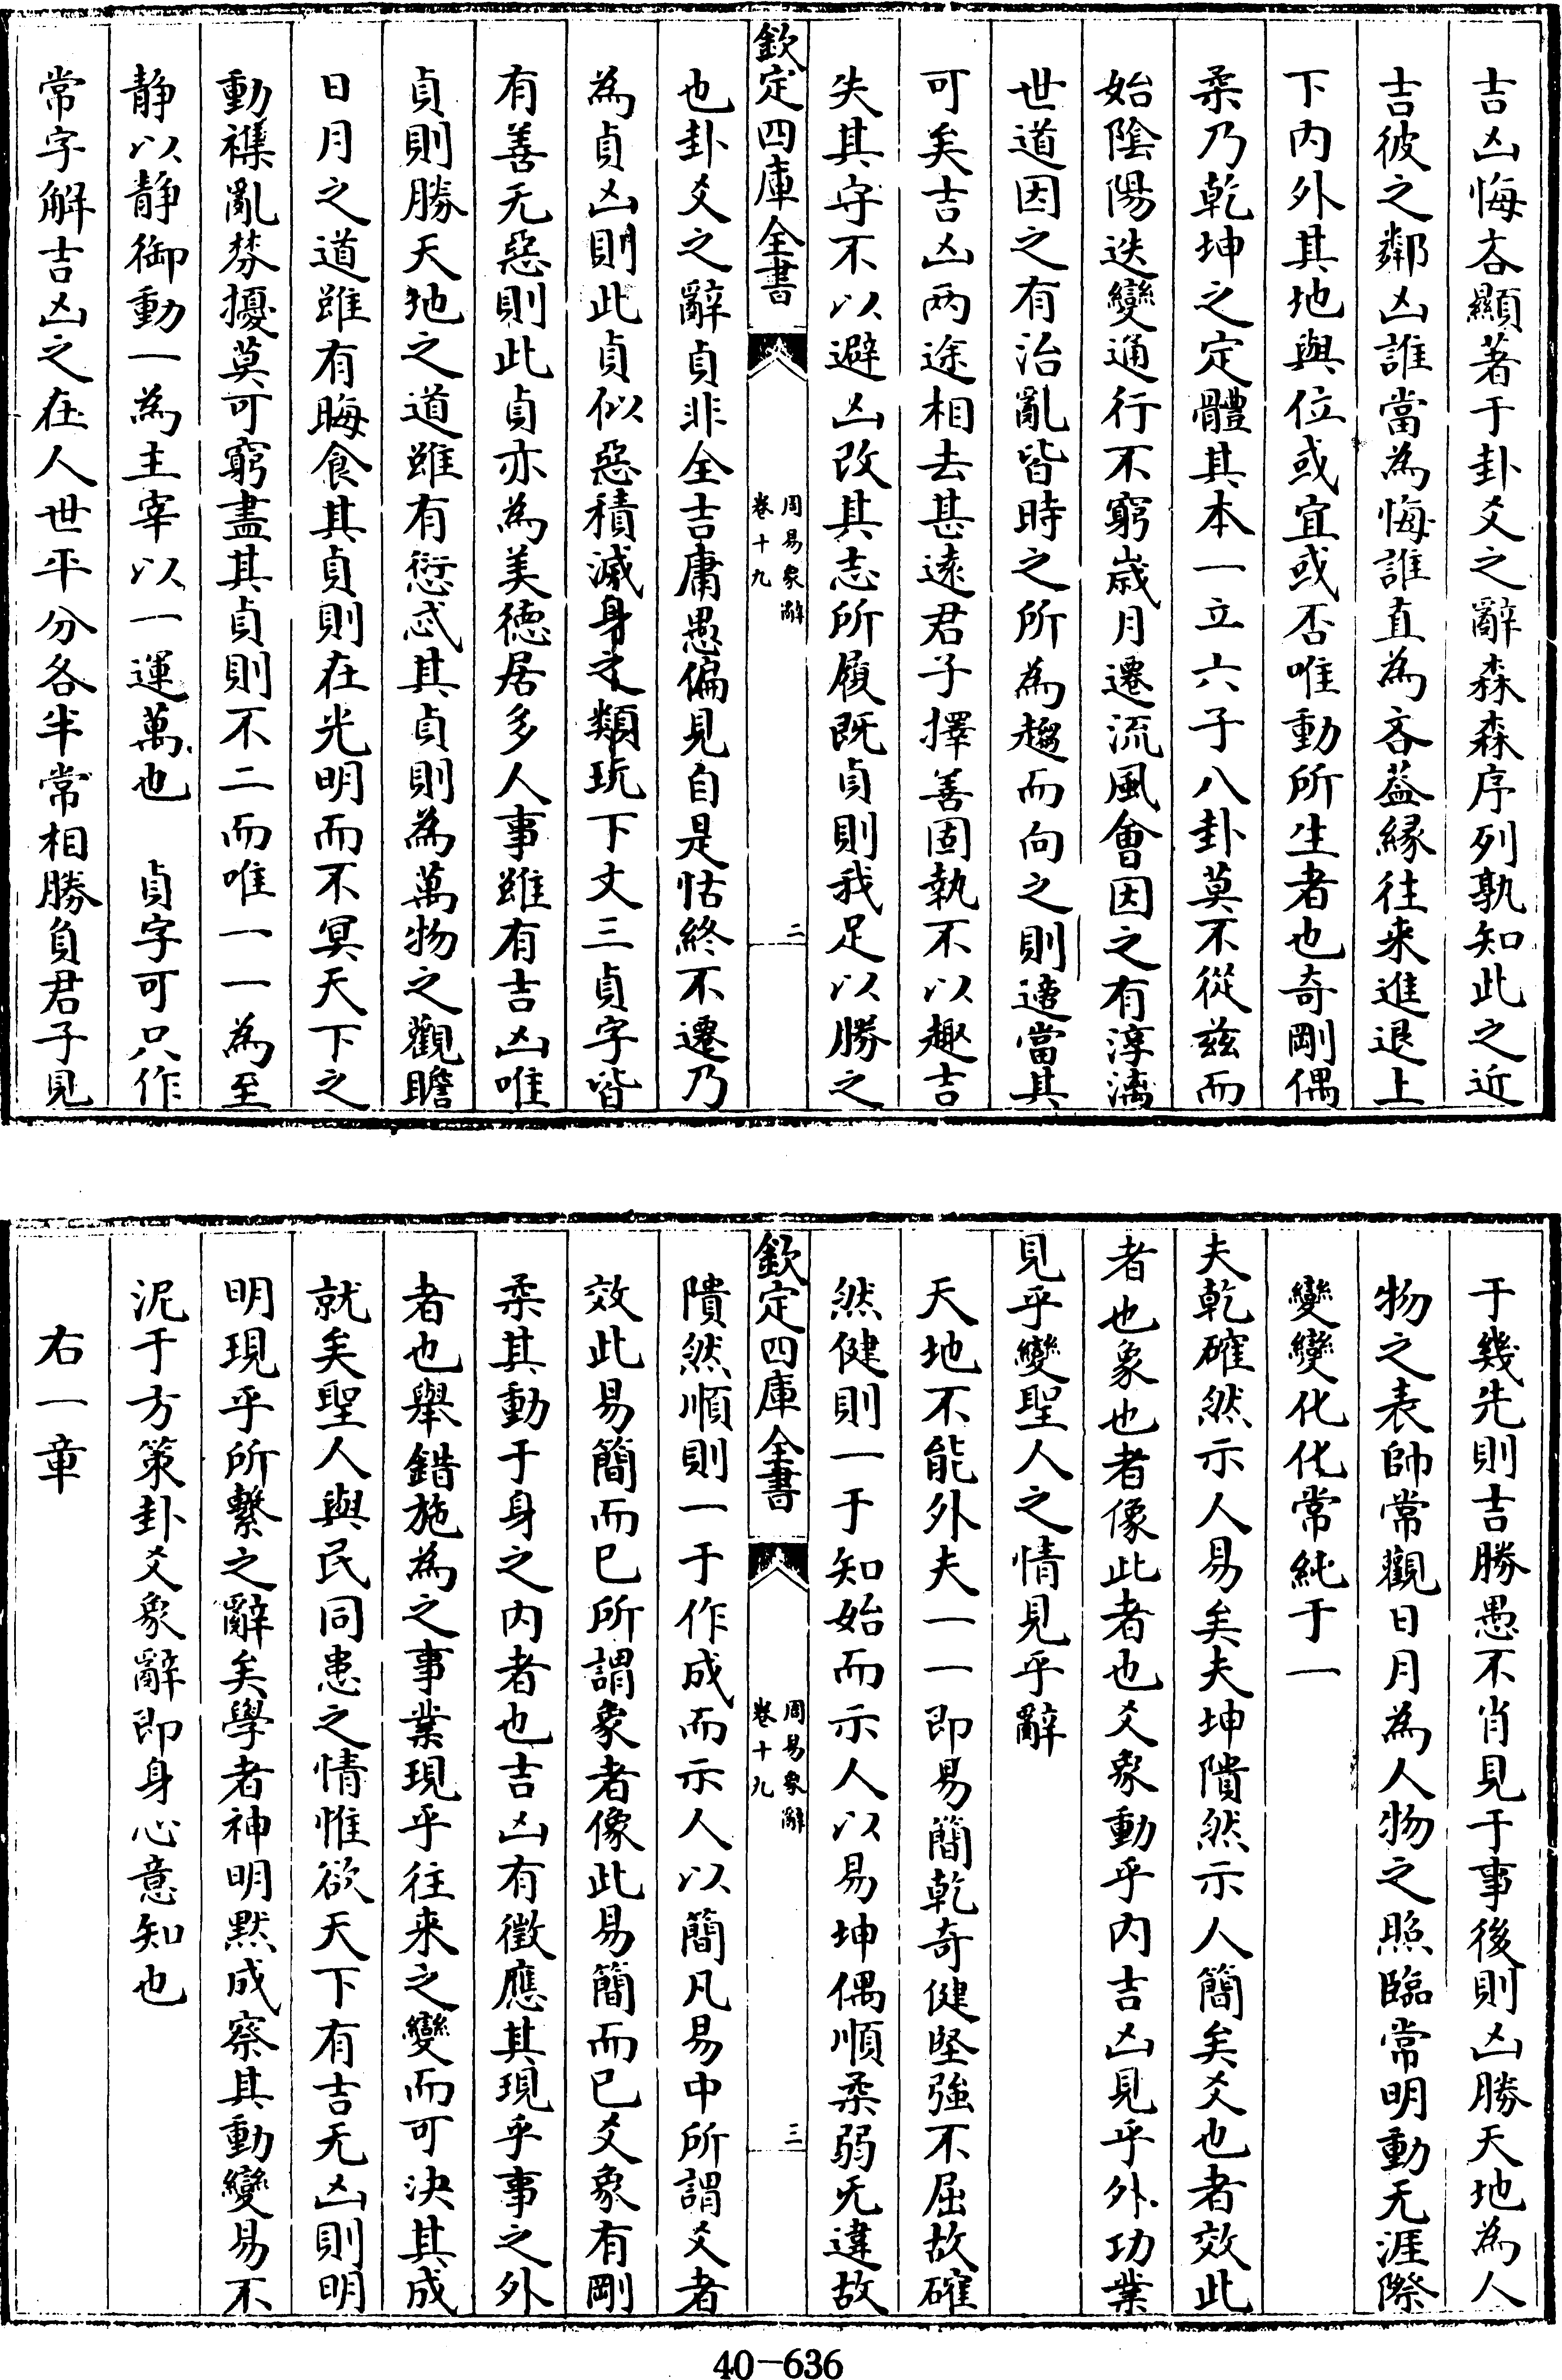 吉凶悔吝顯著于卦爻之辭森森序列孰知此之近
吉彼之鄰凶誰當為悔誰直為吝葢縁往来進退上
下内外其地與位或宜或否唯動所生者也奇剛偶
柔乃乾坤之定體其本一立六子八卦莫不從兹而
始陰陽迭變通行不窮嵗月遷流風會因之有淳漓
世道因之有治亂皆時之所為趨而向之則適當其
可矣吉凶两途相去甚逺君子擇善固執不以趣吉
失其守不以避凶改其志所履既貞則我足以勝之
欽定四庫全書
周易象辭
卷十九
二
也卦爻之辭貞非全吉庸愚偏見自是怙終不遷乃
為貞凶則此貞似惡積滅身之類玩下文三貞字皆
有善无惡則此貞亦為美徳居多人事雖有吉凶唯
貞則勝天地之道雖有愆忒其貞則為萬物之觀瞻
日月之道雖有晦食其貞則在光明而不冥天下之
動襍亂棼擾莫可窮盡其貞則不二而唯一一為至
静以静御動一為主宰以一運萬也　貞字可只作
常字解吉凶之在人世平分各半常相勝負君子見
于幾先則吉勝愚不肖見于事後則凶勝天地為人
物之表帥常觀日月為人物之照臨常明動无涯際
變變化化常純于一
夫乾確然示人易矣夫坤隤然示人簡矣爻也者效此
者也象也者像此者也爻象動乎内吉凶見乎外功業
見乎變聖人之情見乎辭
天地不能外夫一一即易簡乾奇健堅強不屈故確
然健則一于知始而示人以易坤偶順柔弱无違故
欽定四庫全書
周易象辭
卷十九
三
隤然順則一于作成而示人以簡凡易中所謂爻者
效此易簡而已所謂象者像此易簡而已爻象有剛
柔其動于身之内者也吉凶有徵應其現乎事之外
者也舉錯施為之事業現乎往来之變而可決其成
就矣聖人與民同患之情惟欲天下有吉无凶則明
明現乎所繫之辭矣學者神明黙成察其動變易不
泥于方策卦爻象辭即身心意知也
右一章
40-636